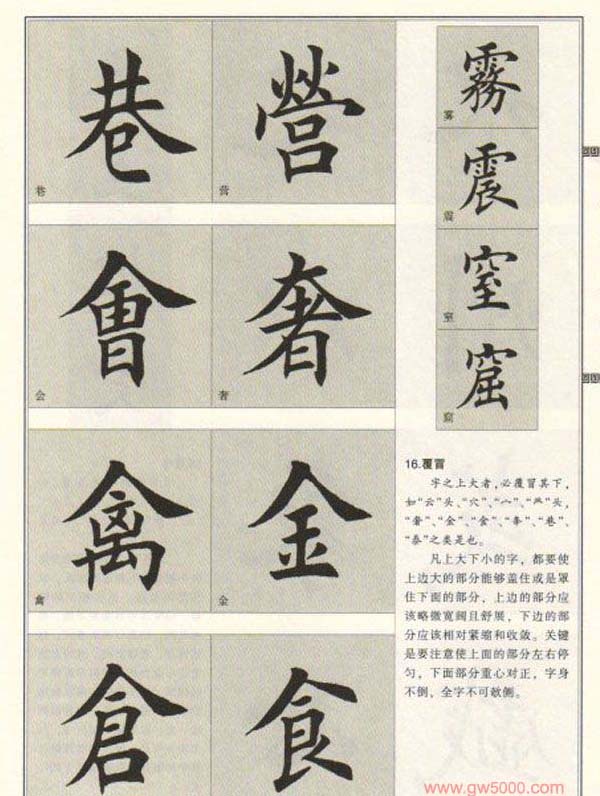 巷 營
巷 营
會 奢
会 奢
禽 金
禽 金
倉 食
霧
雾
震
震
窒
窒
窟
窟
16.覆冒
字之上大者,必覆冒其下,
如“云”头、“穴”、“宀”、头,
“奢”、“金”、“食”、“奉”、“巷”、
“泰”之类是也。
凡上大下小的字，都要使
上边大的部分能够盖住或是罩
住下面的部分，上边的部分应
该略微宽阔且舒展，下边的部
分应该相对紧缩和收敛。关键
是要注意使上面的部分左右停
匀，下面部分重心对正，字身
不倒，全字不可欹侧。
www.gw5000.com